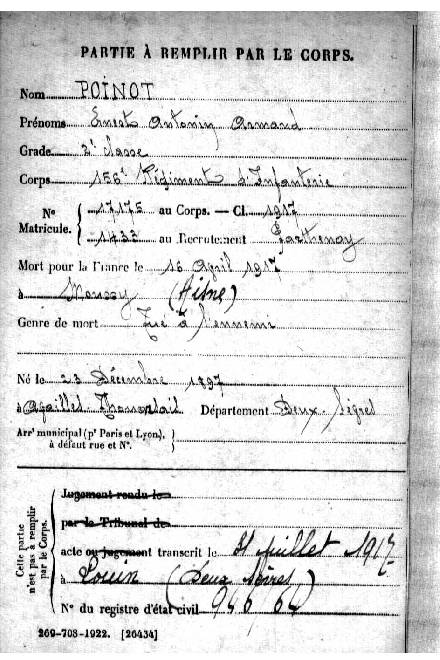 PARTIE À REMPLIR PAR LE CORPS.
Nom POINOT
Prénoms Ernest Antonin Armand
Grade 2e classe
Corps 156e Régiment d'Infanterie
No Matricule. { 17175 au Corps. — Cl. 1917
1432 au Recrutement Parthenay
Mort pour la France le 16 Avril 1917
à Moussy (Aisne)
Genre de mort Tué à l'ennemi
Né le 23 Décembre 1897
à Thouarsais Département Deux-Sèvres
Arrt municipal (pr Paris et Lyon), à défaut rue et No.
Cette partie n'est pas à remplir par le Corps.
Jugement rendu le
par le Tribunal de
acte ou jugement transcrit le 31 juillet 1917
à Louin (Deux Sèvres)
No du registre d'état civil 946/64
269-708-1922. [26434]